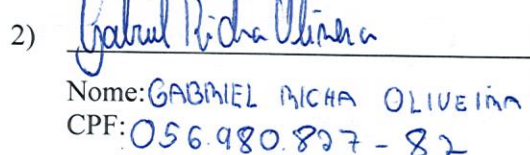 2) Gabriel Richa Oliveira
Nome: GABRIEL RICHA OLIVEIRA
CPF: 056.980.827-82